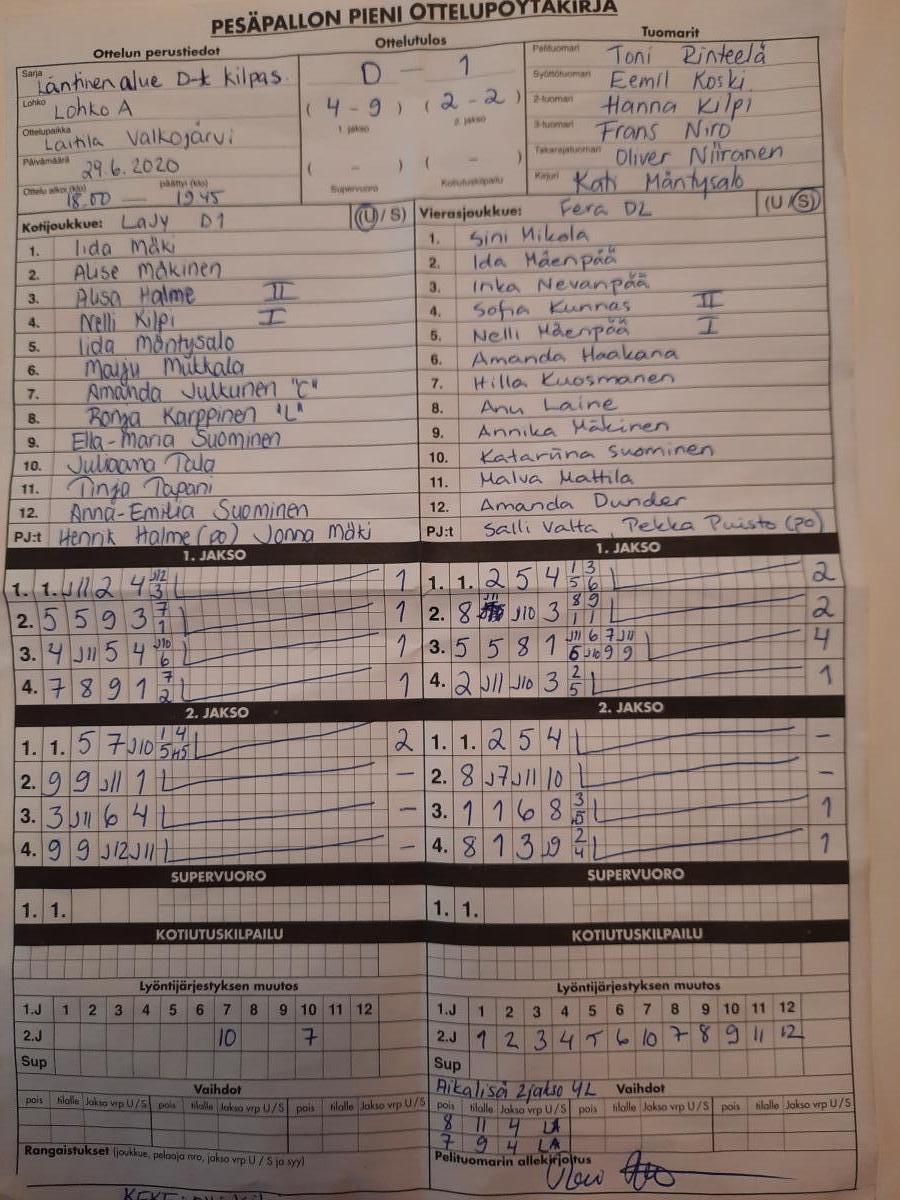 PESÄPALLON PIENI OTTELUPÖYTÄKIRJA
Ottelun perustiedot
Sarja Läntinen alue D-t kilpas.
Lohko Lohko A
Ottelupaikka Laitila Valkojärvi
Päivämäärä 29.6.2020
Ottelu alkoi (klo) 18.00 — päättyi (klo) 19.45
Ottelutulos
0 — 1
(4 - 9) (2 - 2)
1. jakso 2. jakso
( - ) ( - )
Supervuoro Kotiutuskilpailu
Tuomarit
Pelituomari Toni Rinteelä
Syöttötuomari Eemil Koski
2-tuomari Hanna Kilpi
3-tuomari Frans Niro
Takarajatuomari Oliver Niiranen
Kirjuri Kati Mäntysalo
Kotijoukkue: LaJy D1 (U / S)
1. Iida Mäki
2. Alise Mäkinen
3. Alisa Halme II
4. Nelli Kilpi I
5. Iida Mäntysalo
6. Maiju Mukkala
7. Amanda Julkunen "C"
8. Ronja Karppinen "L"
9. Ella-Maria Suominen
10. Juliaana Tala
11. Tinja Tapani
12. Anna-Emilia Suominen
PJ:t Henrik Halme (po) Jonna Mäki
Vierasjoukkue: Fera DL (U / S)
1. Sini Mikola
2. Ida Mäenpää
3. Inka Nevanpää
4. Sofia Kunnas II
5. Nelli Mäenpää I
6. Amanda Haakana
7. Hilla Kuosmanen
8. Anu Laine
9. Annika Mäkinen
10. Katariina Suominen
11. Malva Mattila
12. Amanda Dunder
PJ:t Salli Valta, Pekka Puisto (po)
1. JAKSO
1. 1. J11 2 4 J12 3 1
2. 5 5 9 3 7 1 1
3. 4 J11 5 4 J10 6 1
4. 7 8 9 1 7 2 1
1. JAKSO
1. 1. 2 5 4 1 3 5 6 2
2. 8 J11 J10 3 8 9 1 1 2
3. 5 5 8 1 J11 6 7 J11 6 J10 9 9 4
4. 2 J11 J10 3 2 5 1
2. JAKSO
1. 1. 5 7 J10 1 4 5 2
2. 9 9 J11 1 –
3. 3 J11 6 4 –
4. 9 9 J12 J11 –
2. JAKSO
1. 1. 2 5 4 –
2. 8 J7 J11 10 –
3. 1 1 6 8 3 5 1
4. 8 1 3 J9 2 4 1
SUPERVUORO
1. 1.
SUPERVUORO
1. 1.
KOTIUTUSKILPAILU
KOTIUTUSKILPAILU
Lyöntijärjestyksen muutos
1.J 1 2 3 4 5 6 7 8 9 10 11 12
2.J 10 7
Sup
Lyöntijärjestyksen muutos
1.J 1 2 3 4 5 6 7 8 9 10 11 12
2.J 1 2 3 4 5 6 10 7 8 9 11 12
Sup
Vaihdot
pois tilalle Jakso vrp U / S pois tilalle Jakso vrp U / S pois tilalle Jakso vrp U / S
Rangaistukset (joukkue, pelaaja nro, jakso vrp U / S ja syy)
Aikalisä 2jakso 4L Vaihdot
pois tilalle Jakso vrp U / S pois tilalle Jakso vrp U / S pois tilalle Jakso vrp U / S
8 11 4 LA
7 9 4 LA
Pelituomarin allekirjoitus